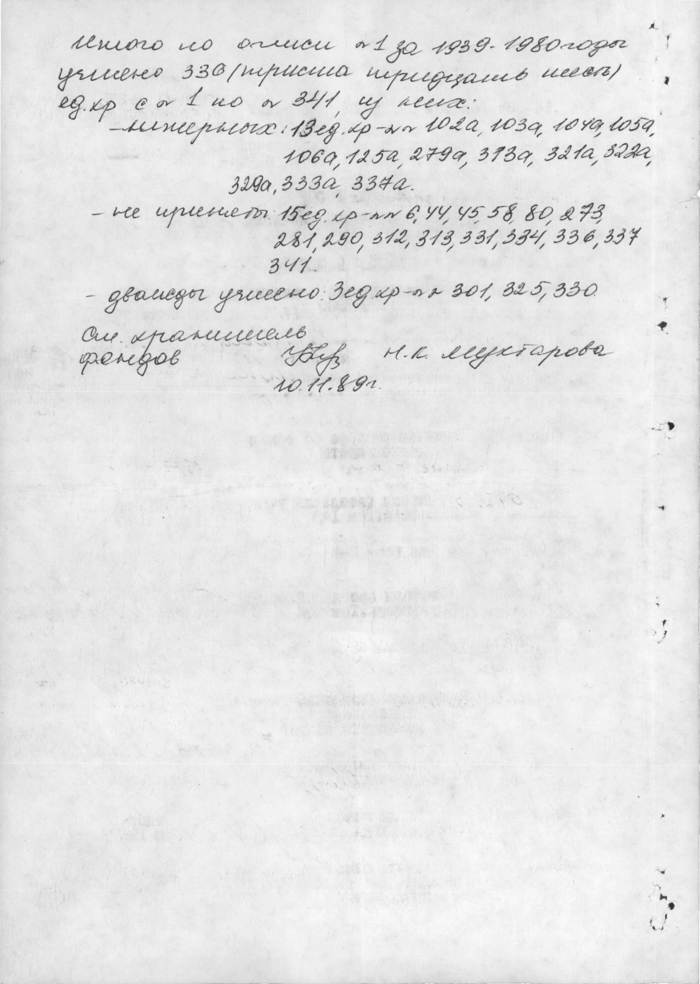 Итого по описи № 1 за 1939-1980 годы
учтено 336 (триста тридцать шесть)
ед.хр с № 1 по № 341, из них:
- литерных: 13 ед.хр-№№ 102а, 103а, 104а, 105а,
106а, 125а, 279а, 313а, 321а, 322а,
329а, 333а, 337а.
- не приняты: 15 ед.хр-№№ 6, 44, 45, 58, 80, 273,
281, 290, 312, 313, 331, 334, 336, 337
341.
- дважды учтено: 3 ед.хр-№№ 301, 325, 330
Ст. хранитель
фондов Н.К. Мухтарова
10.11.89г.